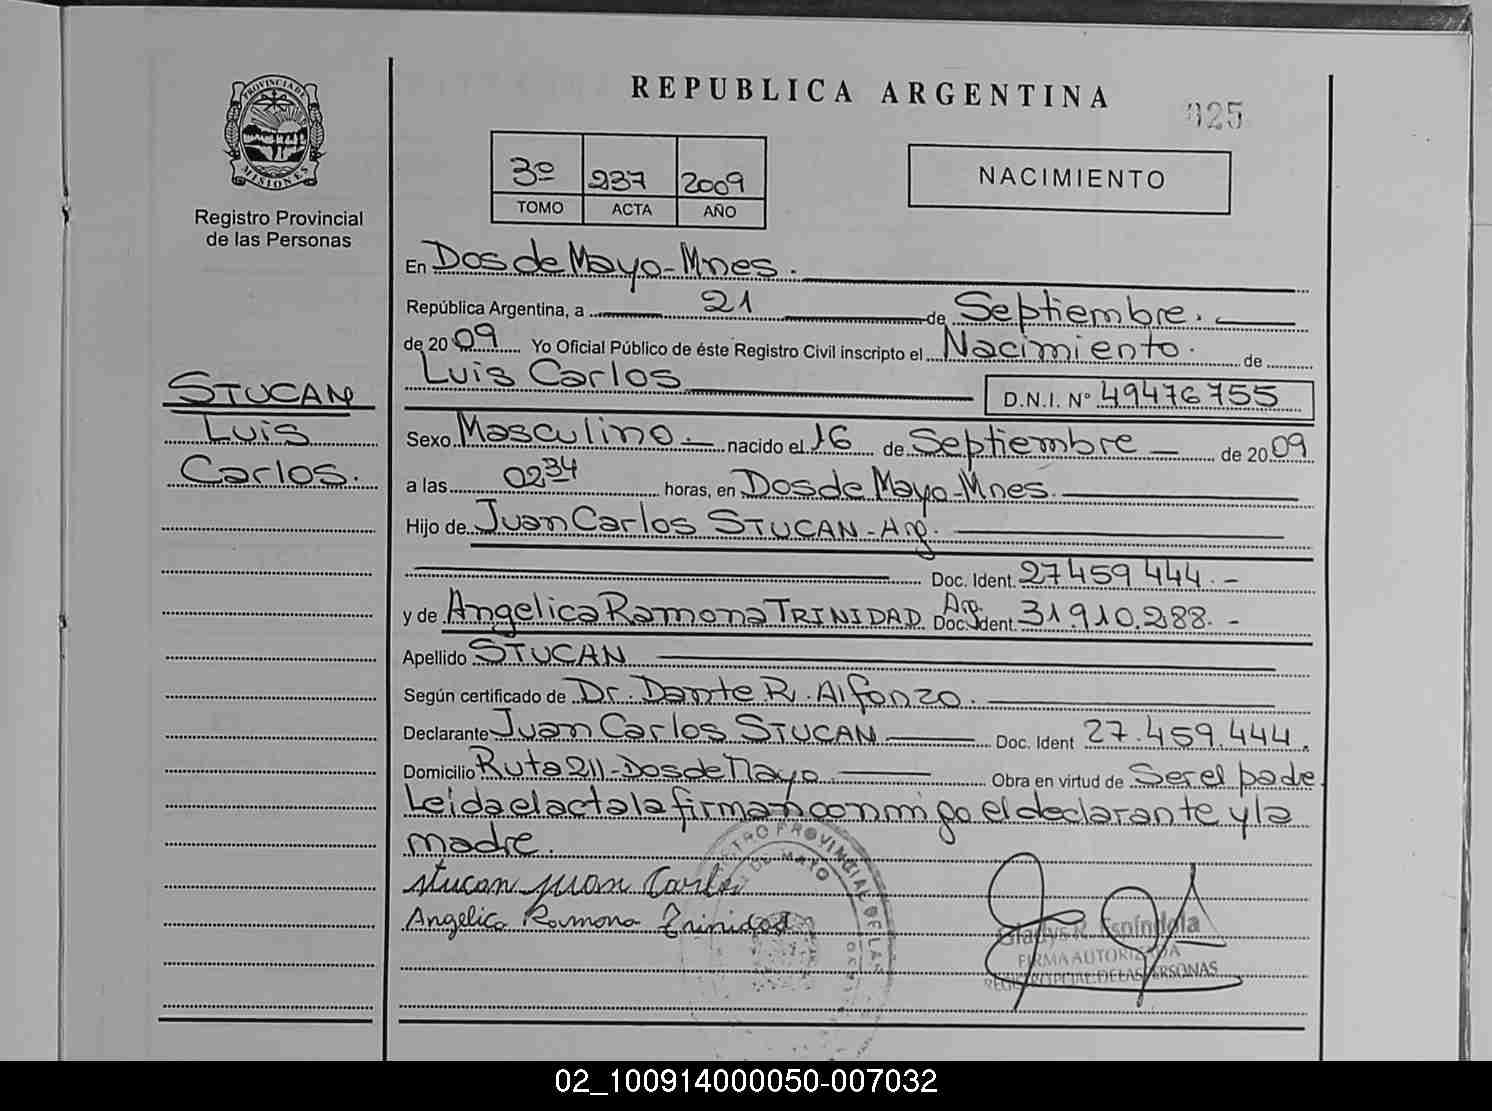 REPUBLICA ARGENTINA
025
PROVINCIA DE
MISIONES
Registro Provincial
de las Personas
3º 237 2009
TOMO ACTA AÑO
NACIMIENTO
En Dos de Mayo - Mnes.
República Argentina, a 21 de Septiembre.
de 2009 Yo Oficial Público de éste Registro Civil inscripto el Nacimiento. de
Luis Carlos
D.N.I. Nº 49476755
STUCAN
Luis
Carlos.
Sexo Masculino. nacido el 16 de Septiembre de 2009
a las 02,34 horas, en Dos de Mayo - Mnes.
Hijo de Juan Carlos STUCAN - Arg.
Doc. Ident. 27459444. -
y de Angelica Ramona TRINIDAD Arg. Doc. Ident. 31.910.288. -
Apellido STUCAN
Según certificado de Dr. Dante R. Alfonzo.
Declarante Juan Carlos STUCAN Doc. Ident 27.459.444.
Domicilio Ruta 211 - Dos de Mayo Obra en virtud de Ser el padre
Leida el acta la firman conmigo el declarante y la
madre.
stucan juan Carlos
Angelica Ramona Trinidad
REGISTRO PROVINCIAL DE LAS
DE MAYO
Gladys R. Espíndola
FIRMA AUTORIZADA
REGISTRO PCIAL. DE LAS PERSONAS
02_100914000050-007032